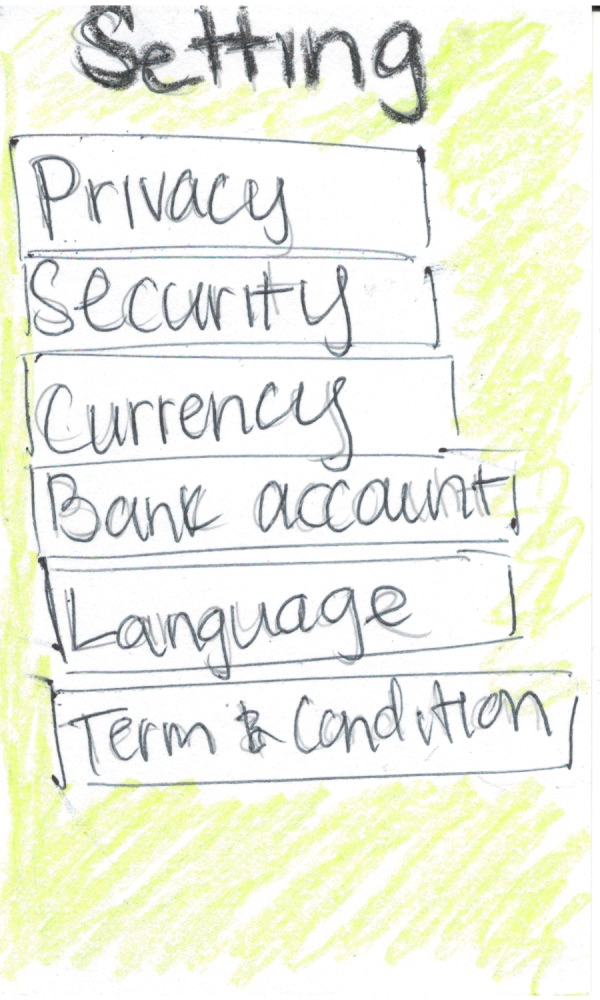 Setting
Privacy
Security
Currency
Bank account
Language
Term & Condition